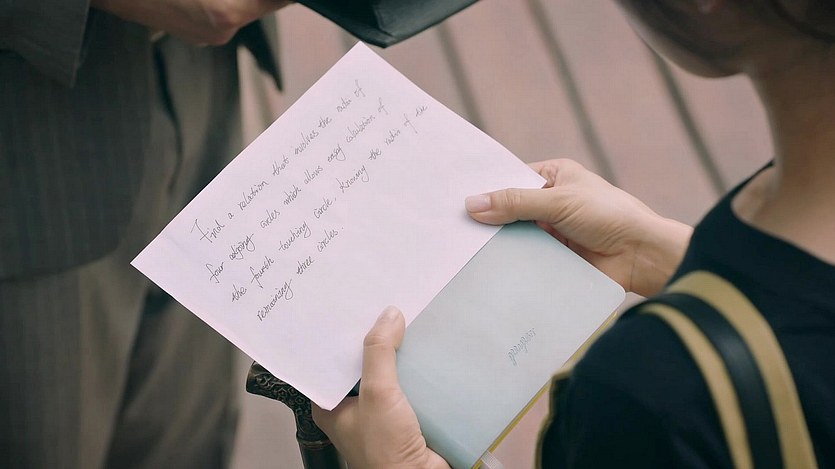 Find a relation that involves the ratio of
four adjoing circles which allows easy calculation of
the fourth touching circle, knowing the ratio of the
remaining three circles.